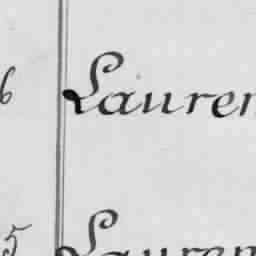 6 Lauren
5 Lauren